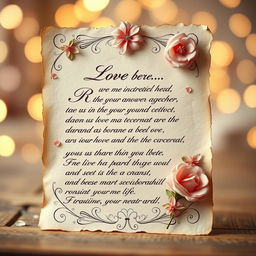 Love bere....
Rwe me incretief held,
the your anower agecher,
tae us in the your ground eellect,
daen us love ma tecernat are the
durand as borane a beet ove,
ars iour hove and the the carcerval,
yous us thare thin you lbetr.
Fne live ha pard thige uoul
and seet is the a cnanst,
and beese mart seouborauhill
ronsint your me life.
Friauline, your neatr ardl.